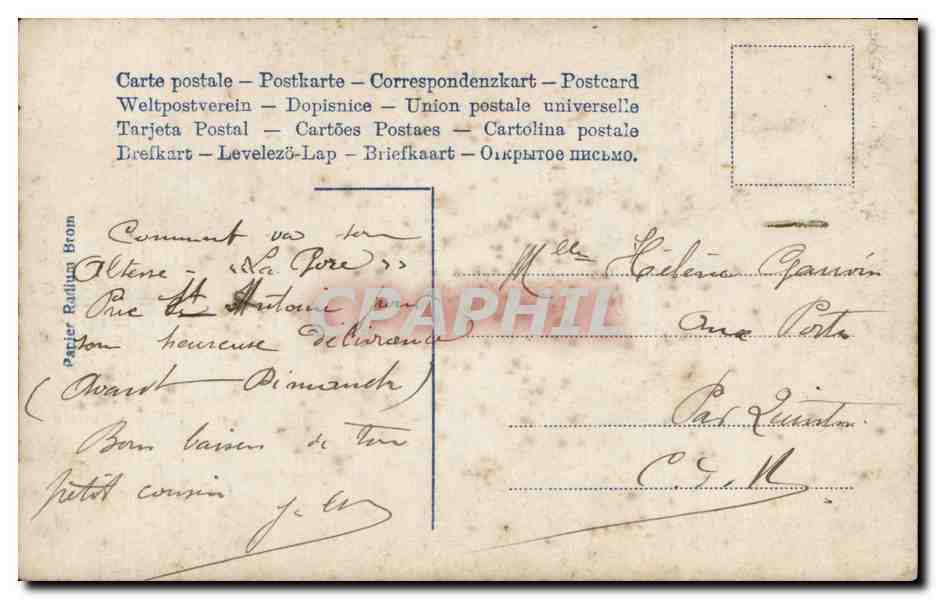 Carte postale – Postkarte – Correspondenzkart – Postcard
Weltpostverein – Dopisnice – Union postale universelle
Tarjeta Postal – Cartões Postaes – Cartolina postale
Brefkart – Levelezö-Lap – Briefkaart – Открытое письмо.
Papier Radium Brom
Comment va ton
« La Gore »
Prie St Antoine pour
son heureuse délivrance
(Avant Dimanche)
Bons baisers de ton
petit cousin
Mlle Hélène Gauvin
aux Portes
Par Quintin
C. d. N
CPAPHIL